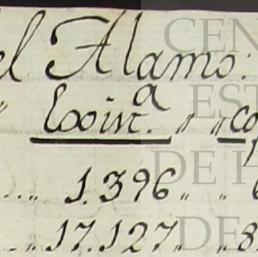 el Alamo.
Exist.ª " " co
1.396 "
17.127 " 8
CEN
EST
DE H
DE